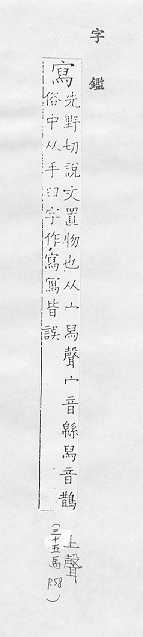 字鑑
寫先野切說文置物也从宀舄聲宀音緜舄音鵲
俗中从手曰字作寫寫皆誤
上聲
(三十五馬 P58)